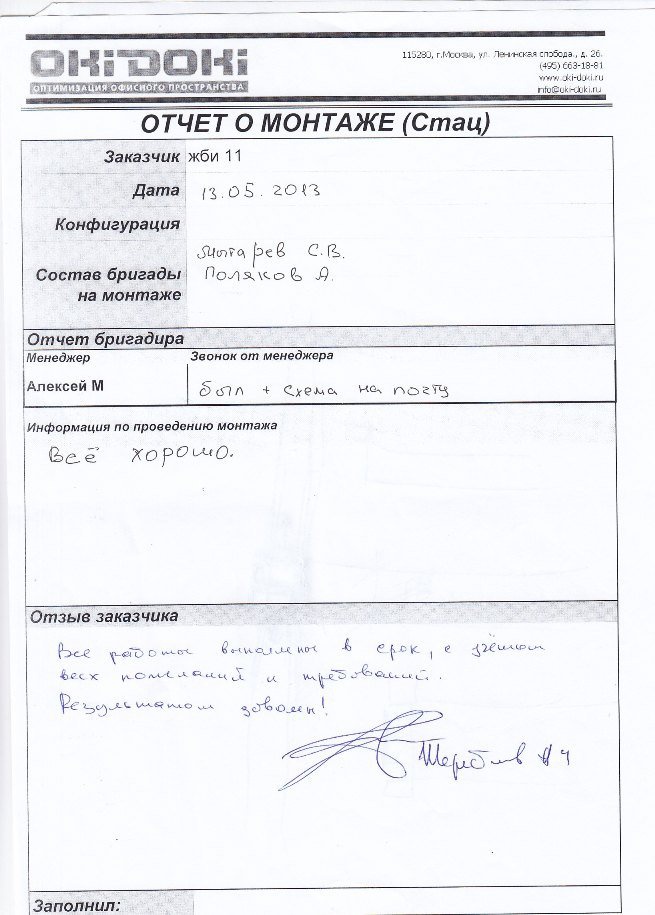 OKiDOKi
ОПТИМИЗАЦИЯ ОФИСНОГО ПРОСТРАНСТВА
115280, г.Москва, ул. Ленинская слобода., д. 26.
(495) 663-18-81
www.oki-doki.ru
info@oki-doki.ru
ОТЧЕТ О МОНТАЖЕ (Стац)
Заказчик жби 11
Дата 13.05.2013
Конфигурация
С.В.
Состав бригады Поляков А.
на монтаже
Отчет бригадира
Менеджер Звонок от менеджера
Алексей М был + схема на почту
Информация по проведению монтажа
Всё хорошо.
Отзыв заказчика
Все работы выполнены в срок, с учётом
всех пожеланий и требований.
Результатом доволен!
Заполнил: